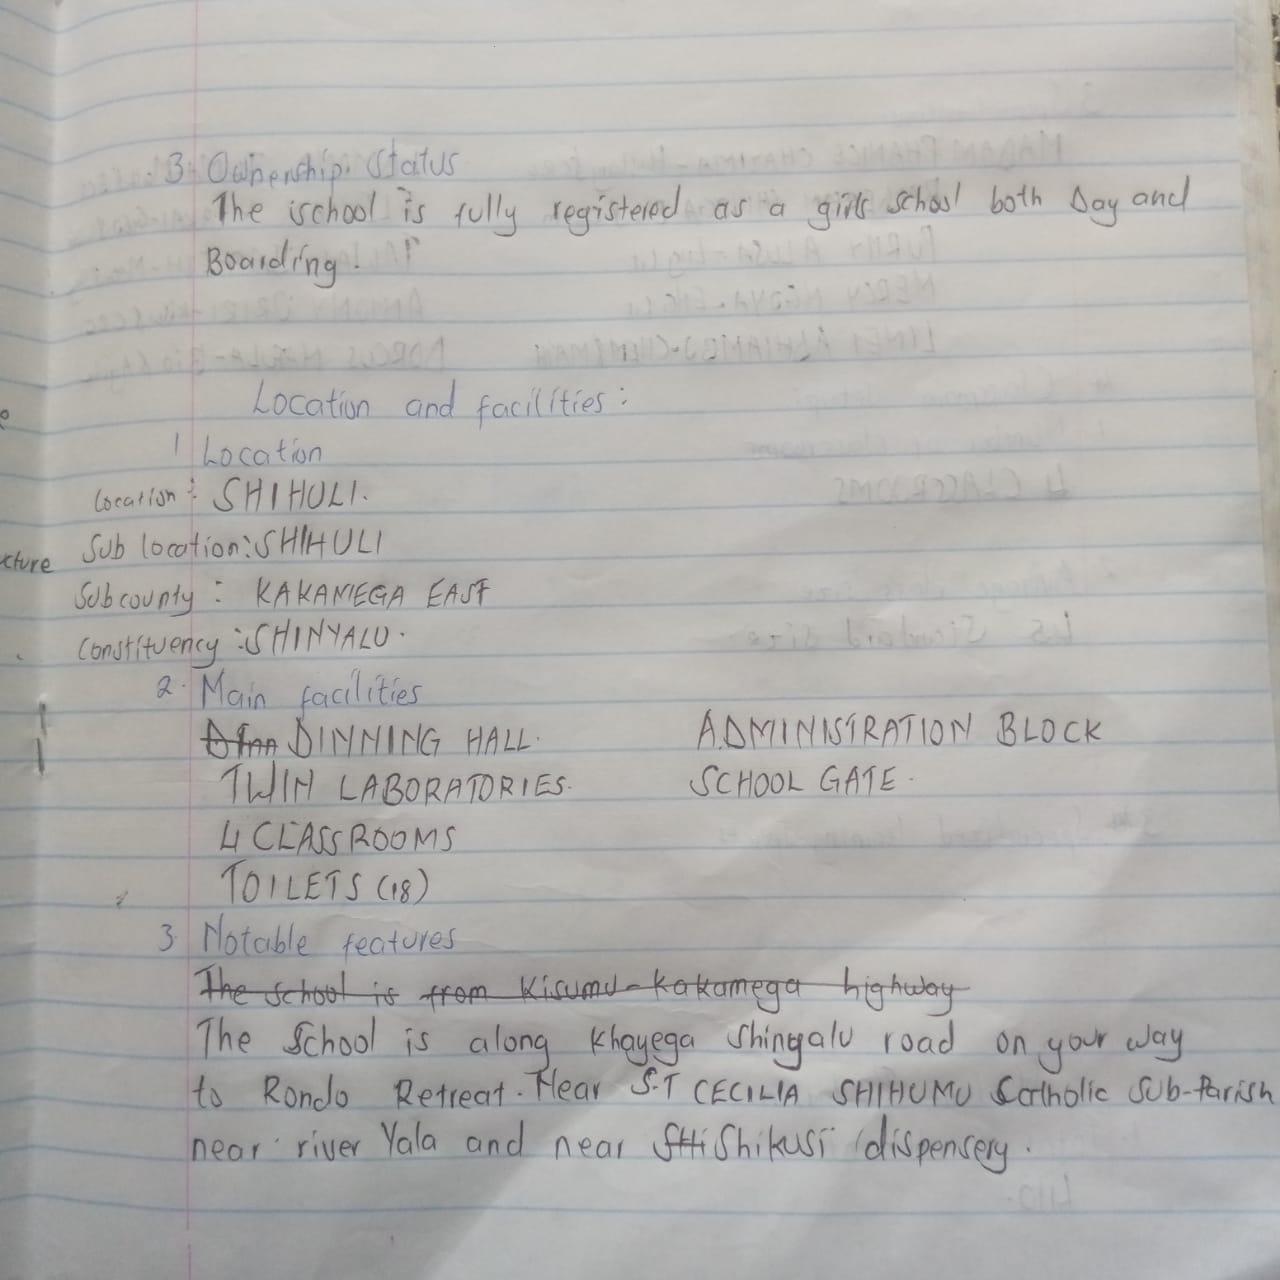 3. Ownership. status
The school is fully registered as a girls school both Day and
Boarding.
Location and facilities:
1 Location
Location: SHIHULI.
Sub location: SHIHULI
Subcounty: KAKAMEGA EAST
Constituency: SHINYALU.
2. Main facilities
DINNING HALL. ADMINISTRATION BLOCK
TWIN LABORATORIES. SCHOOL GATE.
4 CLASSROOMS
TOILETS (18)
3 Notable features
The school is from Kisumu-kakamega highway
The School is along Khayega Shinyalu road on your way
to Rondo Retreat. Near S.T CECILIA SHIHUMU Catholic Sub-Parish
near river Yala and near Shikusi dispensery.
cture